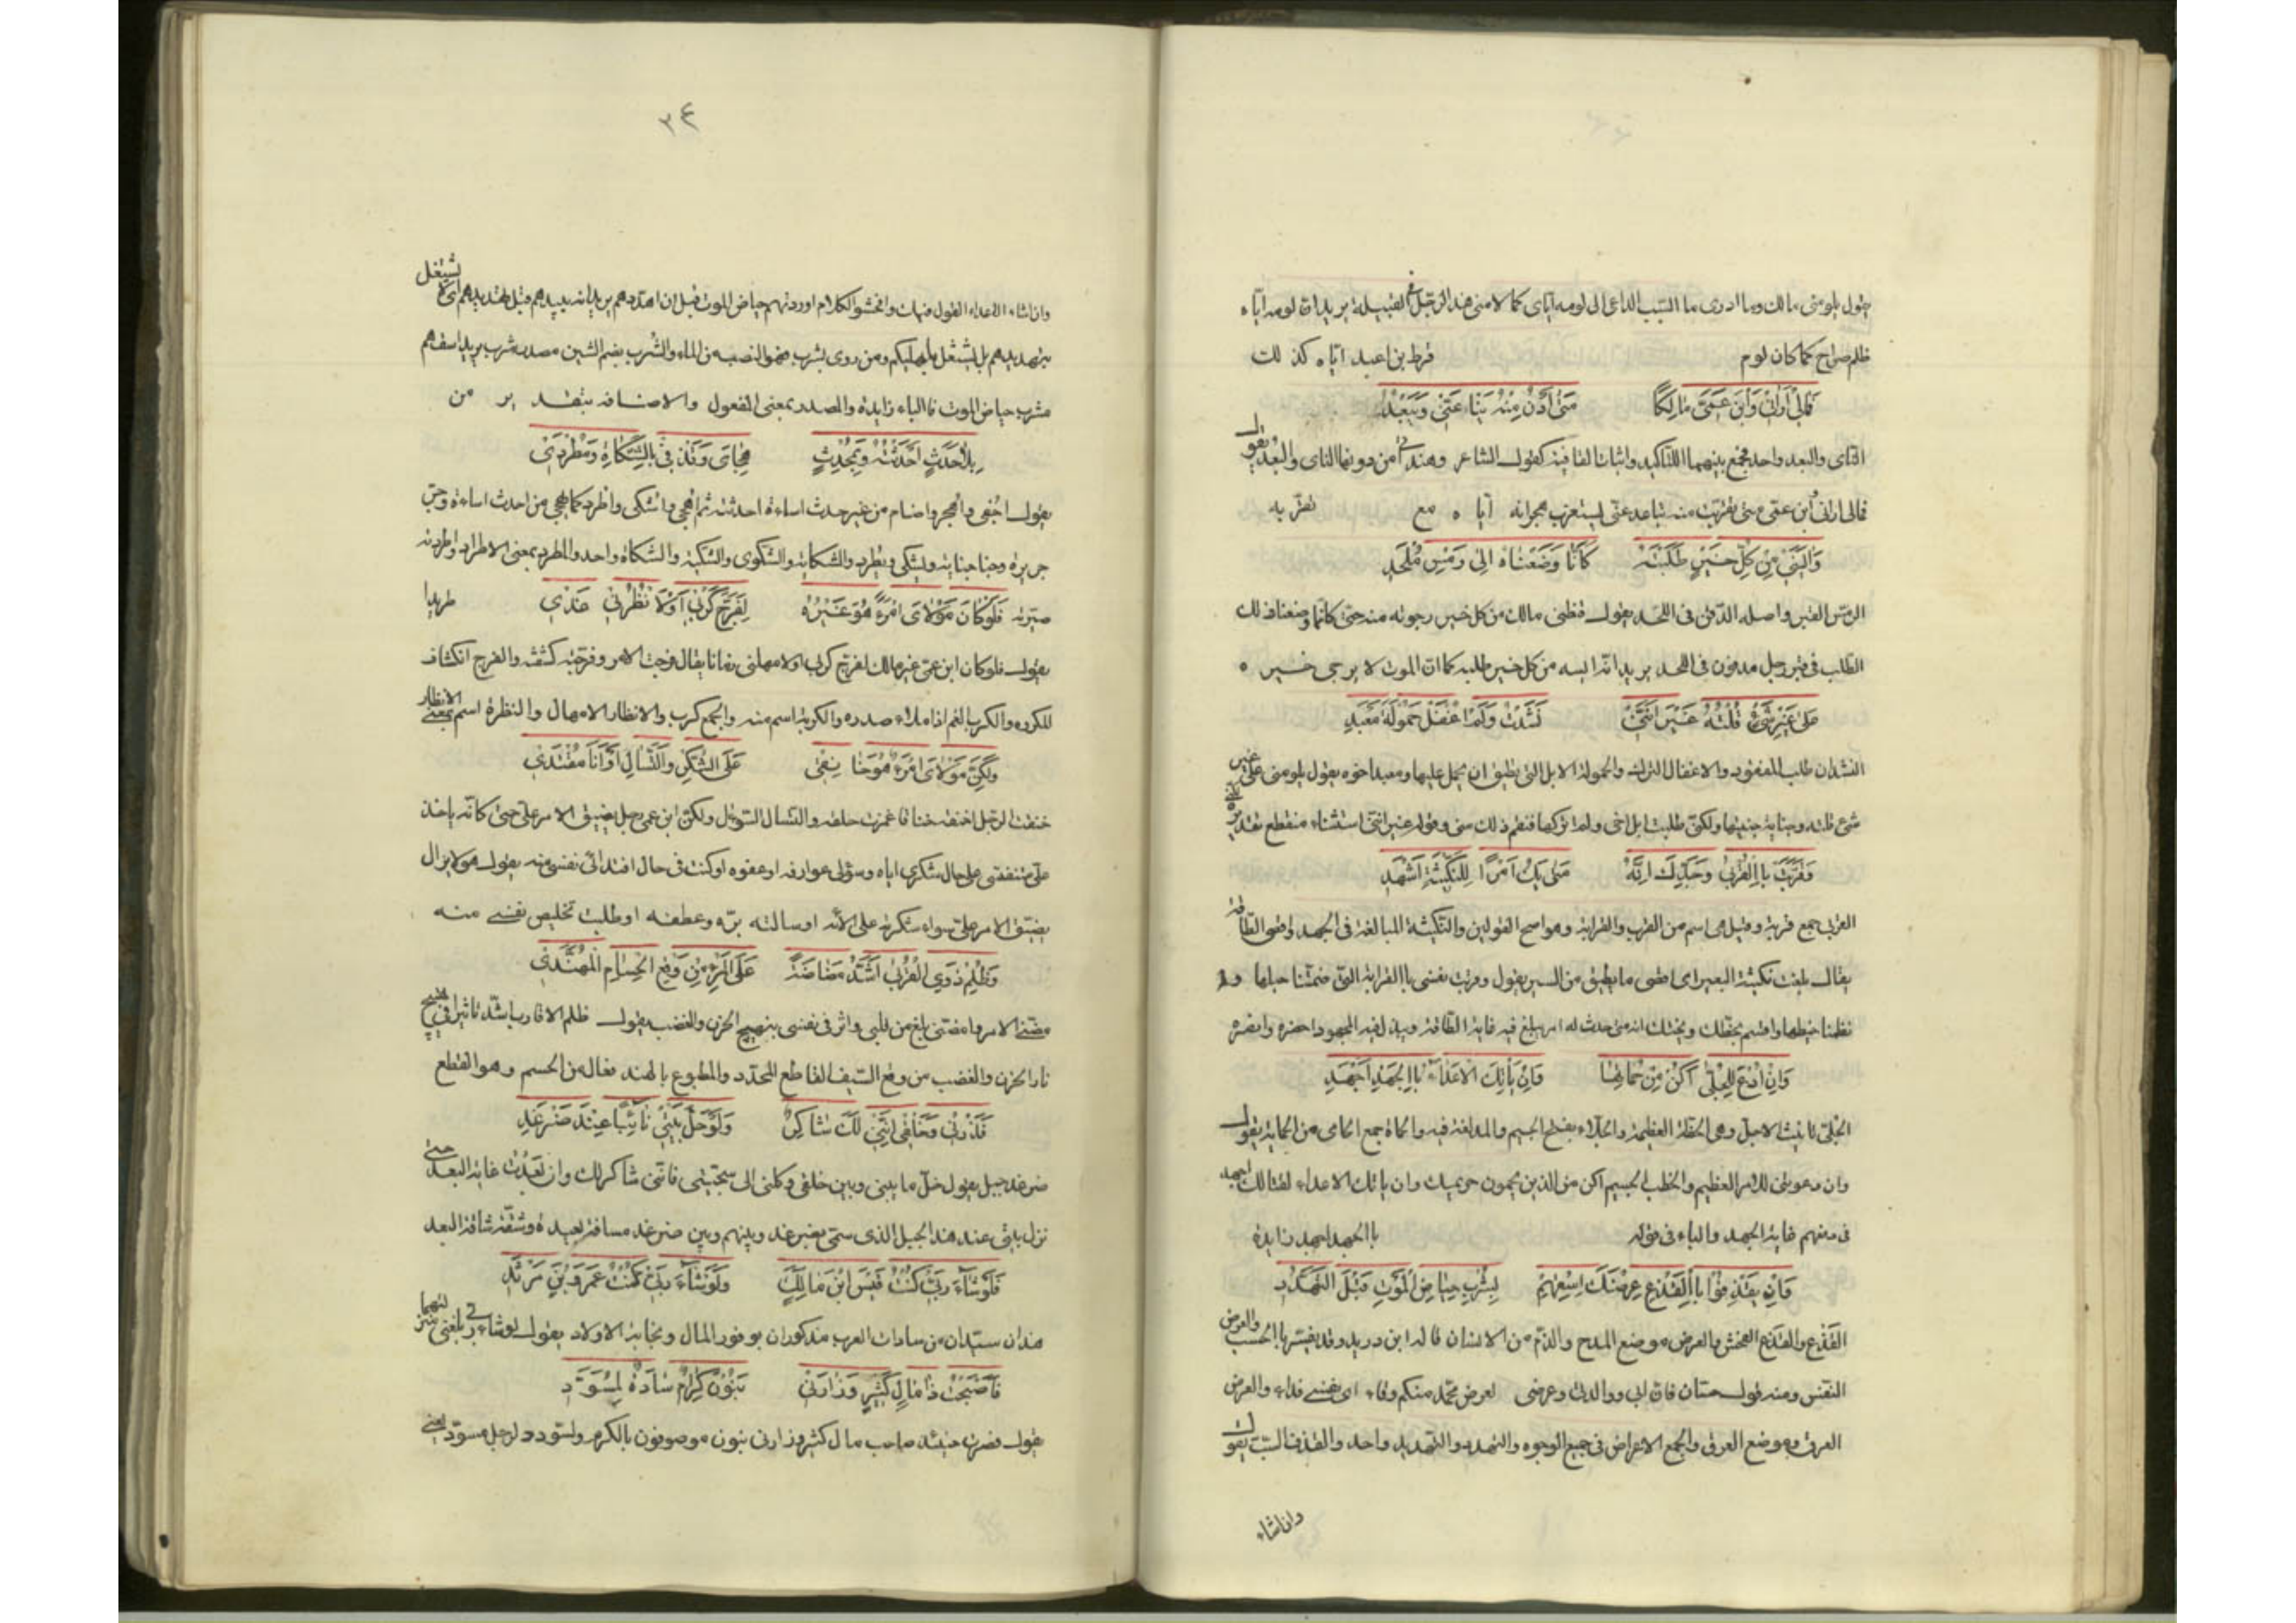 يقول يلومنى مالك وما ادرى ما السّبب الداعى الى لومه اياى كما لامنى هذا الرجل فى القبيلة يريد ان لومه اياه
ظلم صراح كما كان لوم قرط بن اعبد اياه كذلك
فَمَالِى اَرَانِى وَابْنَ عَمِّىَ مَالِكًا مَتٰى اَدْنُ مِنْهُ يَنْاَ عَنِّى وَيَبْعُدُ
النّاى والبعد واحد فجمع بينهما للتاكيد واثبات القافية كقول الشاعر وهند اتى من دونها الناى والبعد يقول
فمالى ارانى وابن عمّى متى تقربت منه تباعد عنّى يستغرب هجرانه اياه مع تقربه
وَاَيْئَسَنِى مِنْ كُلِّ خَيْرٍ طَلَبْتُهُ كَاَنَّا وَضَعْنَاهُ اِلٰى رَمْسِ مُلْحَدِ
الرمس القبر واصله الدّفن فى اللحد يقول قنطنى مالك من كل خير رجوته منه حتى كانّا وضعنا ذلك
الطلب فى قبر رجل مدفون فى اللحد يريد انه ايسه من كل خير طلبه كما ان الموت لا يرجى خيره
عَلٰى غَيْرِ شَىْءٍ قُلْتُهُ غَيْرَ اَنَّنِى نَشَدْتُ وَلَمْ اُغْفِلْ حَمُولَةَ مَعْبَدِ
النشدان طلب المفقود والاغفال الترك والحمولة الابل التى تطيق ان يحمل عليها ومعبد اخوه يقول يلومنى على غير
شىء قلته وجناية جنيتها ولكنّى طلبت ابل اخى ولم اتركها فنقم ذلك منى وقوله غير انّنى استثناء منقطع تقديره
وَقَرَّبْتُ بِالْقُرْبٰى وَجَدِّكَ اِنَّهُ مَتٰى يَكُ اَمْرٌ لِلنَّكِيثَةِ اَشْهَدِ
القربى جمع قربة وقيل هى اسم من القرب والقرابة وهو اصح القولين والنكيثة المبالغة فى الجهد واقصى الطاقة
يقال بلغت نكيثة البعير اى اقصى ما يطيق من السير يقول وقربت نفسى بالقرابة التى ضمّتنا حبلها
نظمنا خيطها واقسم بحظّك وبختك انه متى حدث له امر يبلغ فيه غاية الطّاقة ويبذل فيه المجهود احضره وانصره
وَاِنْ اُدْعَ لِلْجُلّٰى اَكُنْ مِنْ حُمَاتِهَا وَاِنْ يَاْتِكَ الْاَعْدَاءُ بِالْجَهْدِ اَجْهَدِ
الجُلّى تانيث الاجلّ وهى الخطّة العظيمة والجلّاء بفتح الجيم والمد لغة فيه والحماة جمع الحامى من الحماية يقول
وان دعوتنى للامر العظيم والخطب الجسيم اكن من الذين يحمون حريمك وان ياتك الاعداء لقتالك اجهد
فى دفعهم غاية الجهد والباء فى قوله بالجهد اجهد زايدة
وَاِنْ يَقْذِفُوا بِالْقَذْعِ عِرْضَكَ اَسْقِهِمْ بِشُرْبِ حِيَاضِ الْمَوْتِ قَبْلَ التَّهَدُّدِ
القذع والقذع الفحش والعرض موضع المدح والذّم من الانسان قاله ابن دريد وقد يفسّر بالحسب والعرض
النفس ومنه قول حسّان فان ابى ووالدتى وعرضى لعرض محمّد منكم وقاء اى نفسى فداء والعرض
العرق وموضع العرق والجمع الاعراض فى جميع الوجوه والتهدّد والتّهديد واحد والقذف السّبّ يقول
وان اساء
٣٤
وان اساء الاعداء القول فيك وافحشوا الكلام اوردتهم حياض الموت قبل ان اهدّدهم يريد انه يبيدهم قبل تهديدهم اى لا يشتغل
بتهديدهم بل يشتغل باهلاكهم ومن روى بشرب فهو النصيب من الماء والشُّرب بضم الشين مصدر شرب يريد اسقهم
شرب حياض الموت فالباء زايدة والمصدر بمعنى المفعول والاضافة بتقدير من
بِلَا حَدَثٍ اَحْدَثْتُهُ وَكَمُحْدَثٍ هِجَائِى وَقَذْفِى بِالشَّكَاةِ وَمُطْرَدِى
يقول اُجفى واُهجر واضام من غير حدث اساءة احدثته ثم اُهجى واُشكى واُطرد كما يهجى من احدث اساءة وجرّ
جريرة وجنا جناية ويشكى ويطرد والشكاية والشكوى والشكية والشكاة واحد والمطرد بمعنى الاطراد واطردته
صيّرته طريدا فَلَوْ كَانَ مَوْلَاىَ امْرَءً هُوَ غَيْرُهُ لَفَرَّجَ كَرْبِى اَوْ لَاَنْظَرَنِى غَدِى
يقول فلو كان ابن عمّى غير مالك لفرّج كربى او لامهلنى زمانا يقال فرجت الامر وفرّجته كشفته والفرج انكشاف
المكروه والكرب الغم اذا ملاء صدره والكربة اسم منه والجمع كرب والانظار الامهال والنظرة اسم بمعنى الانظار
وَلٰكِنَّ مَوْلَاىَ امْرَءٌ هُوَ خَانِقِى عَلَى الشُّكْرِ وَالتَّسْاٰلِ اَوْ اَنَا مُفْتَدِى
خنقت الرجل اخنقه خنقا غمزت حلقه والتسال السّؤال ولكن ابن عمى رجل يضيق الامر علىّ حتى كانّه ياخذ
علىّ متنفسى على حال شكرى اياه وسؤالى عوارفه او عفوه او كنت فى حال افتدائى نفسى منه يقول هو لا يزال
يضيّق الامر علىّ سواء شكرته على الآئه او سالته برّه وعطفه او طلبت تخليص نفسى منه
وَظُلْمُ ذَوِى الْقُرْبٰى اَشَدُّ مَضَاضَةً عَلَى الْمَرْءِ مِنْ وَقْعِ الْحُسَامِ الْمُهَنَّدِ
مضّنى الامر وامضّنى بلغ من قلبى واثر فى نفسى بتهييج الحزن والغضب يقول ظلم الاقارب اشدّ تاثيرا فى تهييج
نار الحزن والغضب من وقع السّيف القاطع المحدّد والمطبوع بالهند فعال من الحسم وهو القطع
فَذَرْنِى وَخُلْقِى اِنَّنِى لَكَ شَاكِرٌ وَلَوْ حَلَّ بَيْتِى نَائِيًا عِنْدَ ضَرْغَدِ
ضرغد جبل يقول خلّ ما بينى وبين خلقى وكلنى الى سجيّتى فانّنى شاكر لك وان بَعُدت غاية البعد حتى
نزل بيتى عند هذا الجبل الذى سمّى بضرغد وبينهم وبين ضرغد مسافة بعيدة وشقّة شاقة البعد
فَلَوْ شَاءَ رَبِّى كُنْتُ قَيْسَ ابْنَ مَالِكٍ وَلَوْ شَاءَ رَبِّى كُنْتُ عَمْرَو بْنَ مَرْثَدِ
هذان سيّدان من سادات العرب مذكوران بوفور المال ونجابة الاولاد يقول لو شاء ربى بلغنى منزلتهما
فَاَصْبَحْتُ ذَا مَالٍ كَثِيرٍ وَزَارَنِى بَنُونَ كِرَامٌ سَادَةٌ لِمُسَوَّدِ
يقول فصرت حينئذ صاحب مال كثير وزارنى بنون موصوفون بالكرم والسودد لرجل مسوّد يعنى